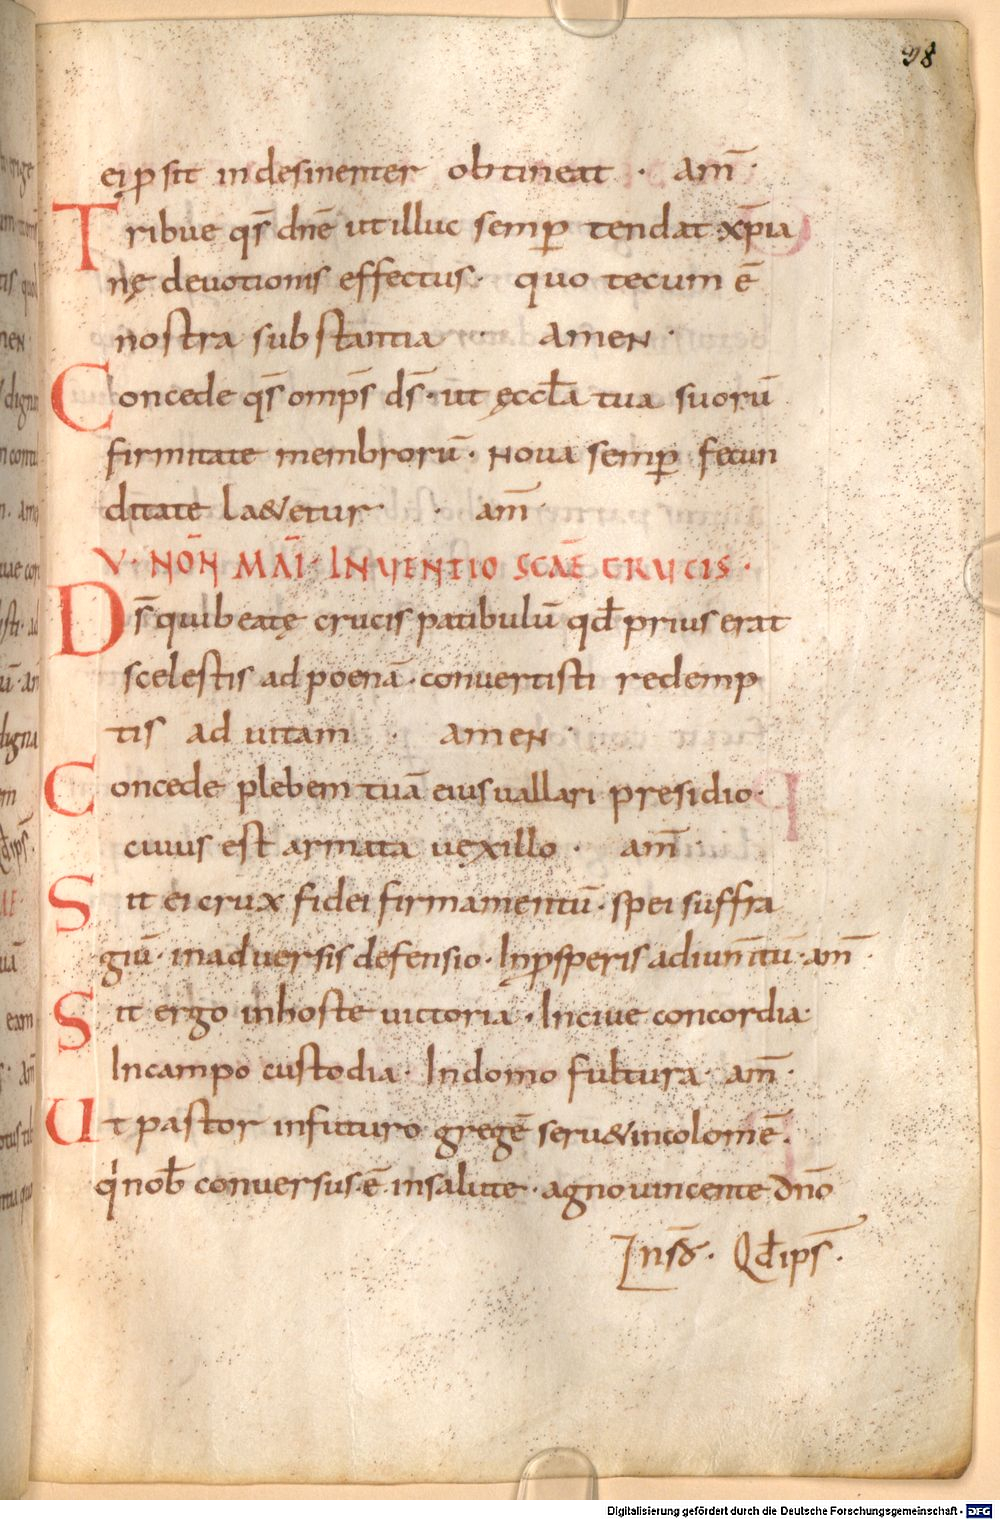 98
ei p̄ sit indesinenter obtineat · am̄ ·
Tribue qs̄ dnē ut illuc semp̄ tendat xp̄ia
nę devotionis effectus · quo tecum ē
nostra substantia · amen ·
Concede qs̄ omps̄ ds̄ · ut ęccłа tua suorū
firmitate membrorū · nova semp̄ fecun
ditate la&etur · am̄ ·
V · NON̄ MAĪ · INVENTIO SCAE̅ CRUCIS ·
Ds̄ qui beatę crucis patibulū qđ prius erat
scelestis ad poenā · convertisti redemp
tis ad vitam · amen ·
Concede plebem tuā eius vallari presidio ·
cuius est armata vexillo · am̄ ·
Sit ei crux fidei firmamentū · spei suffra
giū · in adversis defensio · In p̄speris adium̄tū · am̄ ·
Sit ergo in hoste victoria · In cive concordia ·
In campo custodia · In domo fultura · am̄ ·
Ut pastor in futuro gregē serv&incolomē ·
q'nob̄ conversus · ē in salute · agno vincente dnō
Insđ · Qđ ips̄ ·
Digitalisierung gefördert durch die Deutsche Forschungsgemeinschaft - DFG